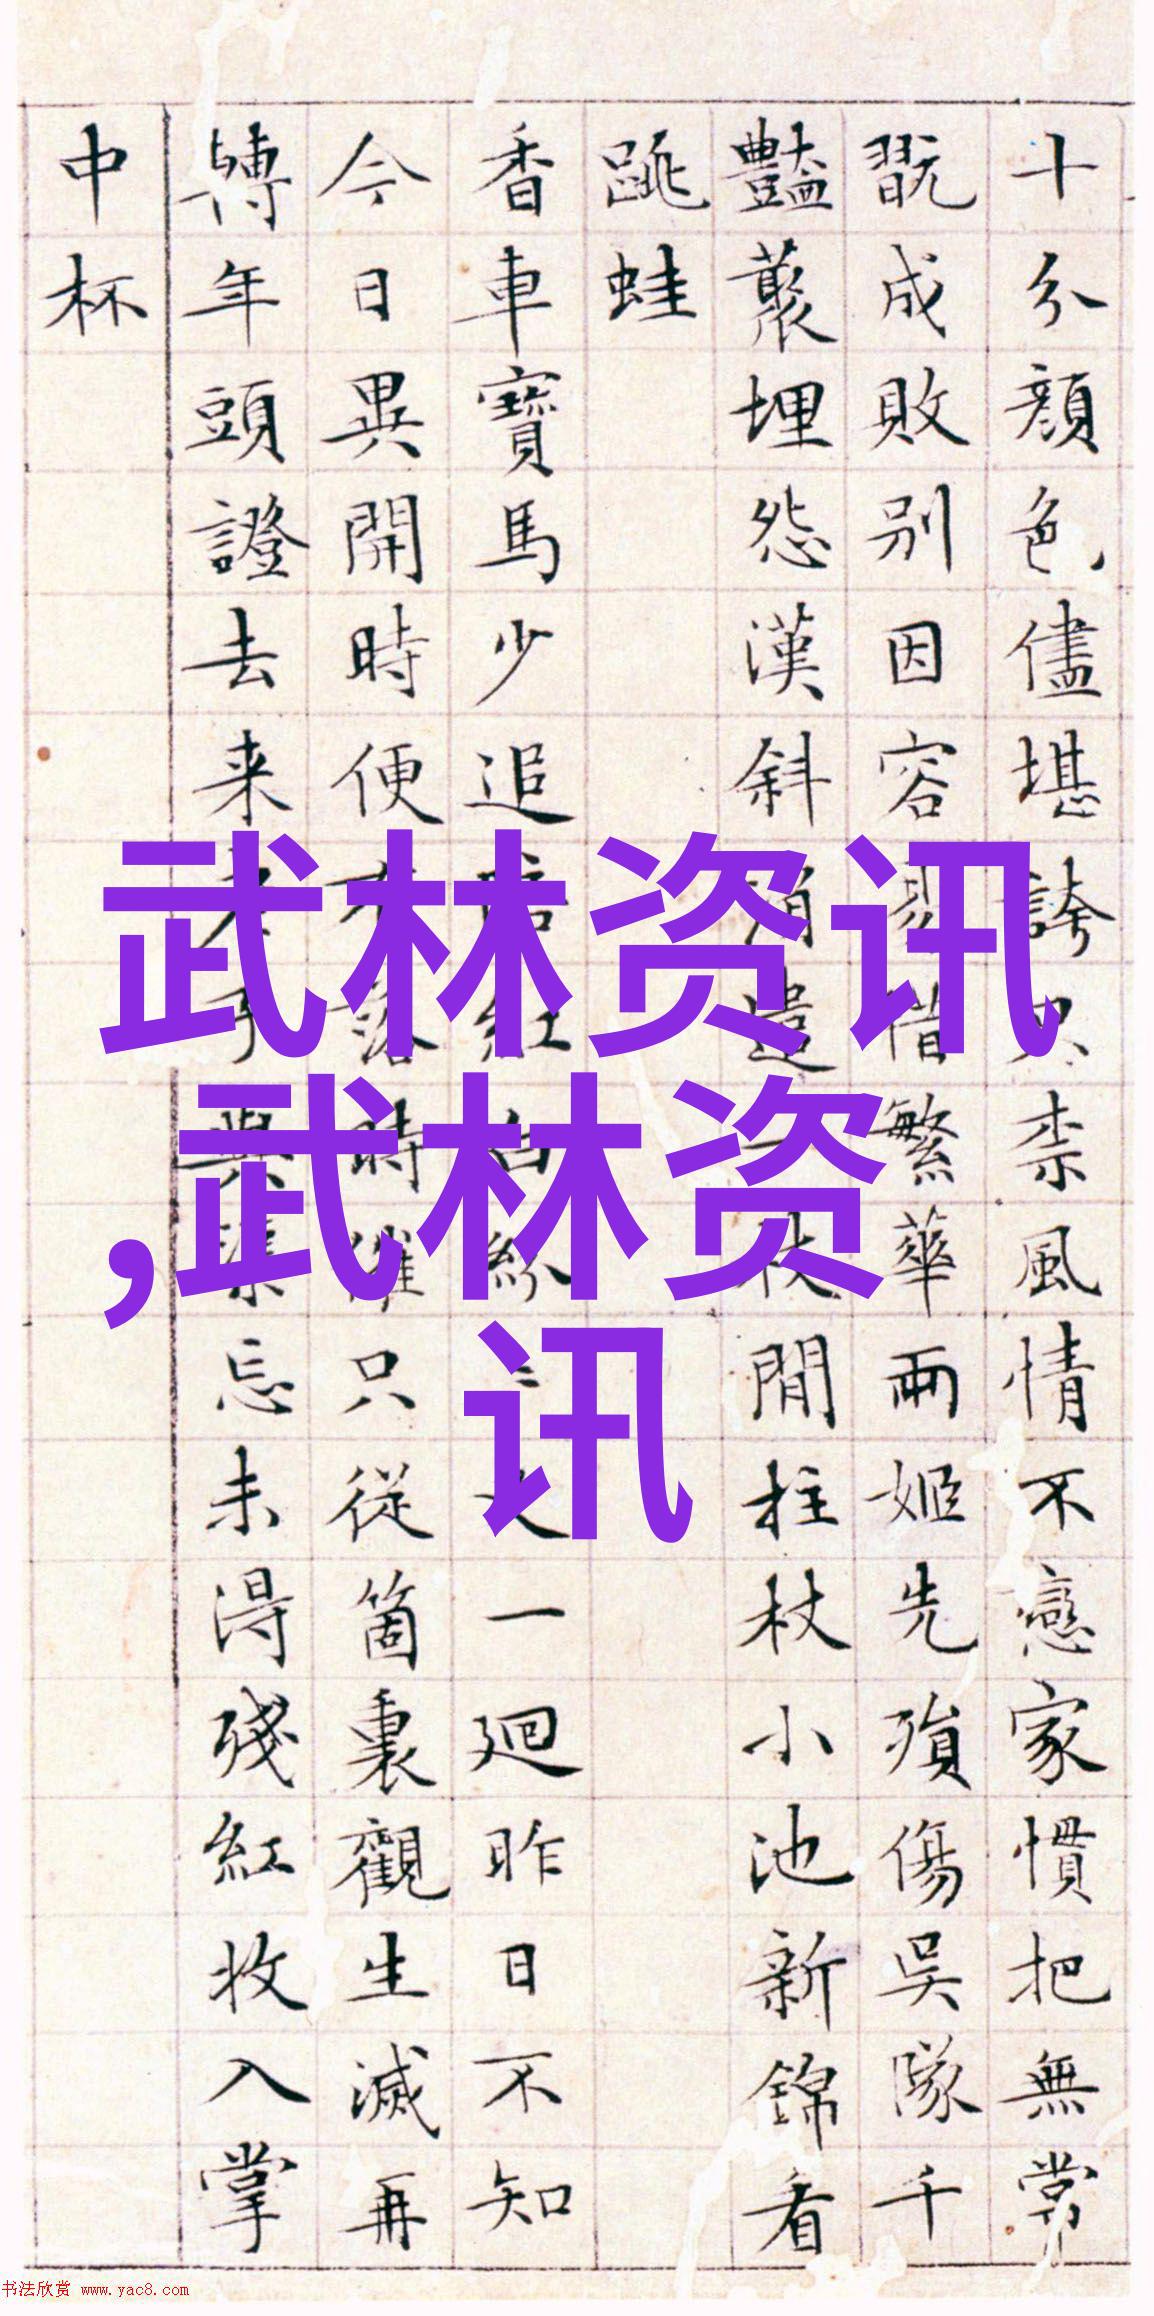 十分顏色儘堪誇只柰風情不戀家慣把無常
翫成敗别因容易惜繁華兩姬先殞傷吳隊千
豔叢埋怨漢斜消遣一枝閒柱杖小池新錦看
跳蛙
香車寶馬少追陪紅白紛一廻昨日不知
今日異開時便落時催只從箇裏觀生滅再
轉年頭證去来忘未得殘紅收入掌
中杯
武林资讯
,武林资
讯
书法欣赏 www.yac8.com